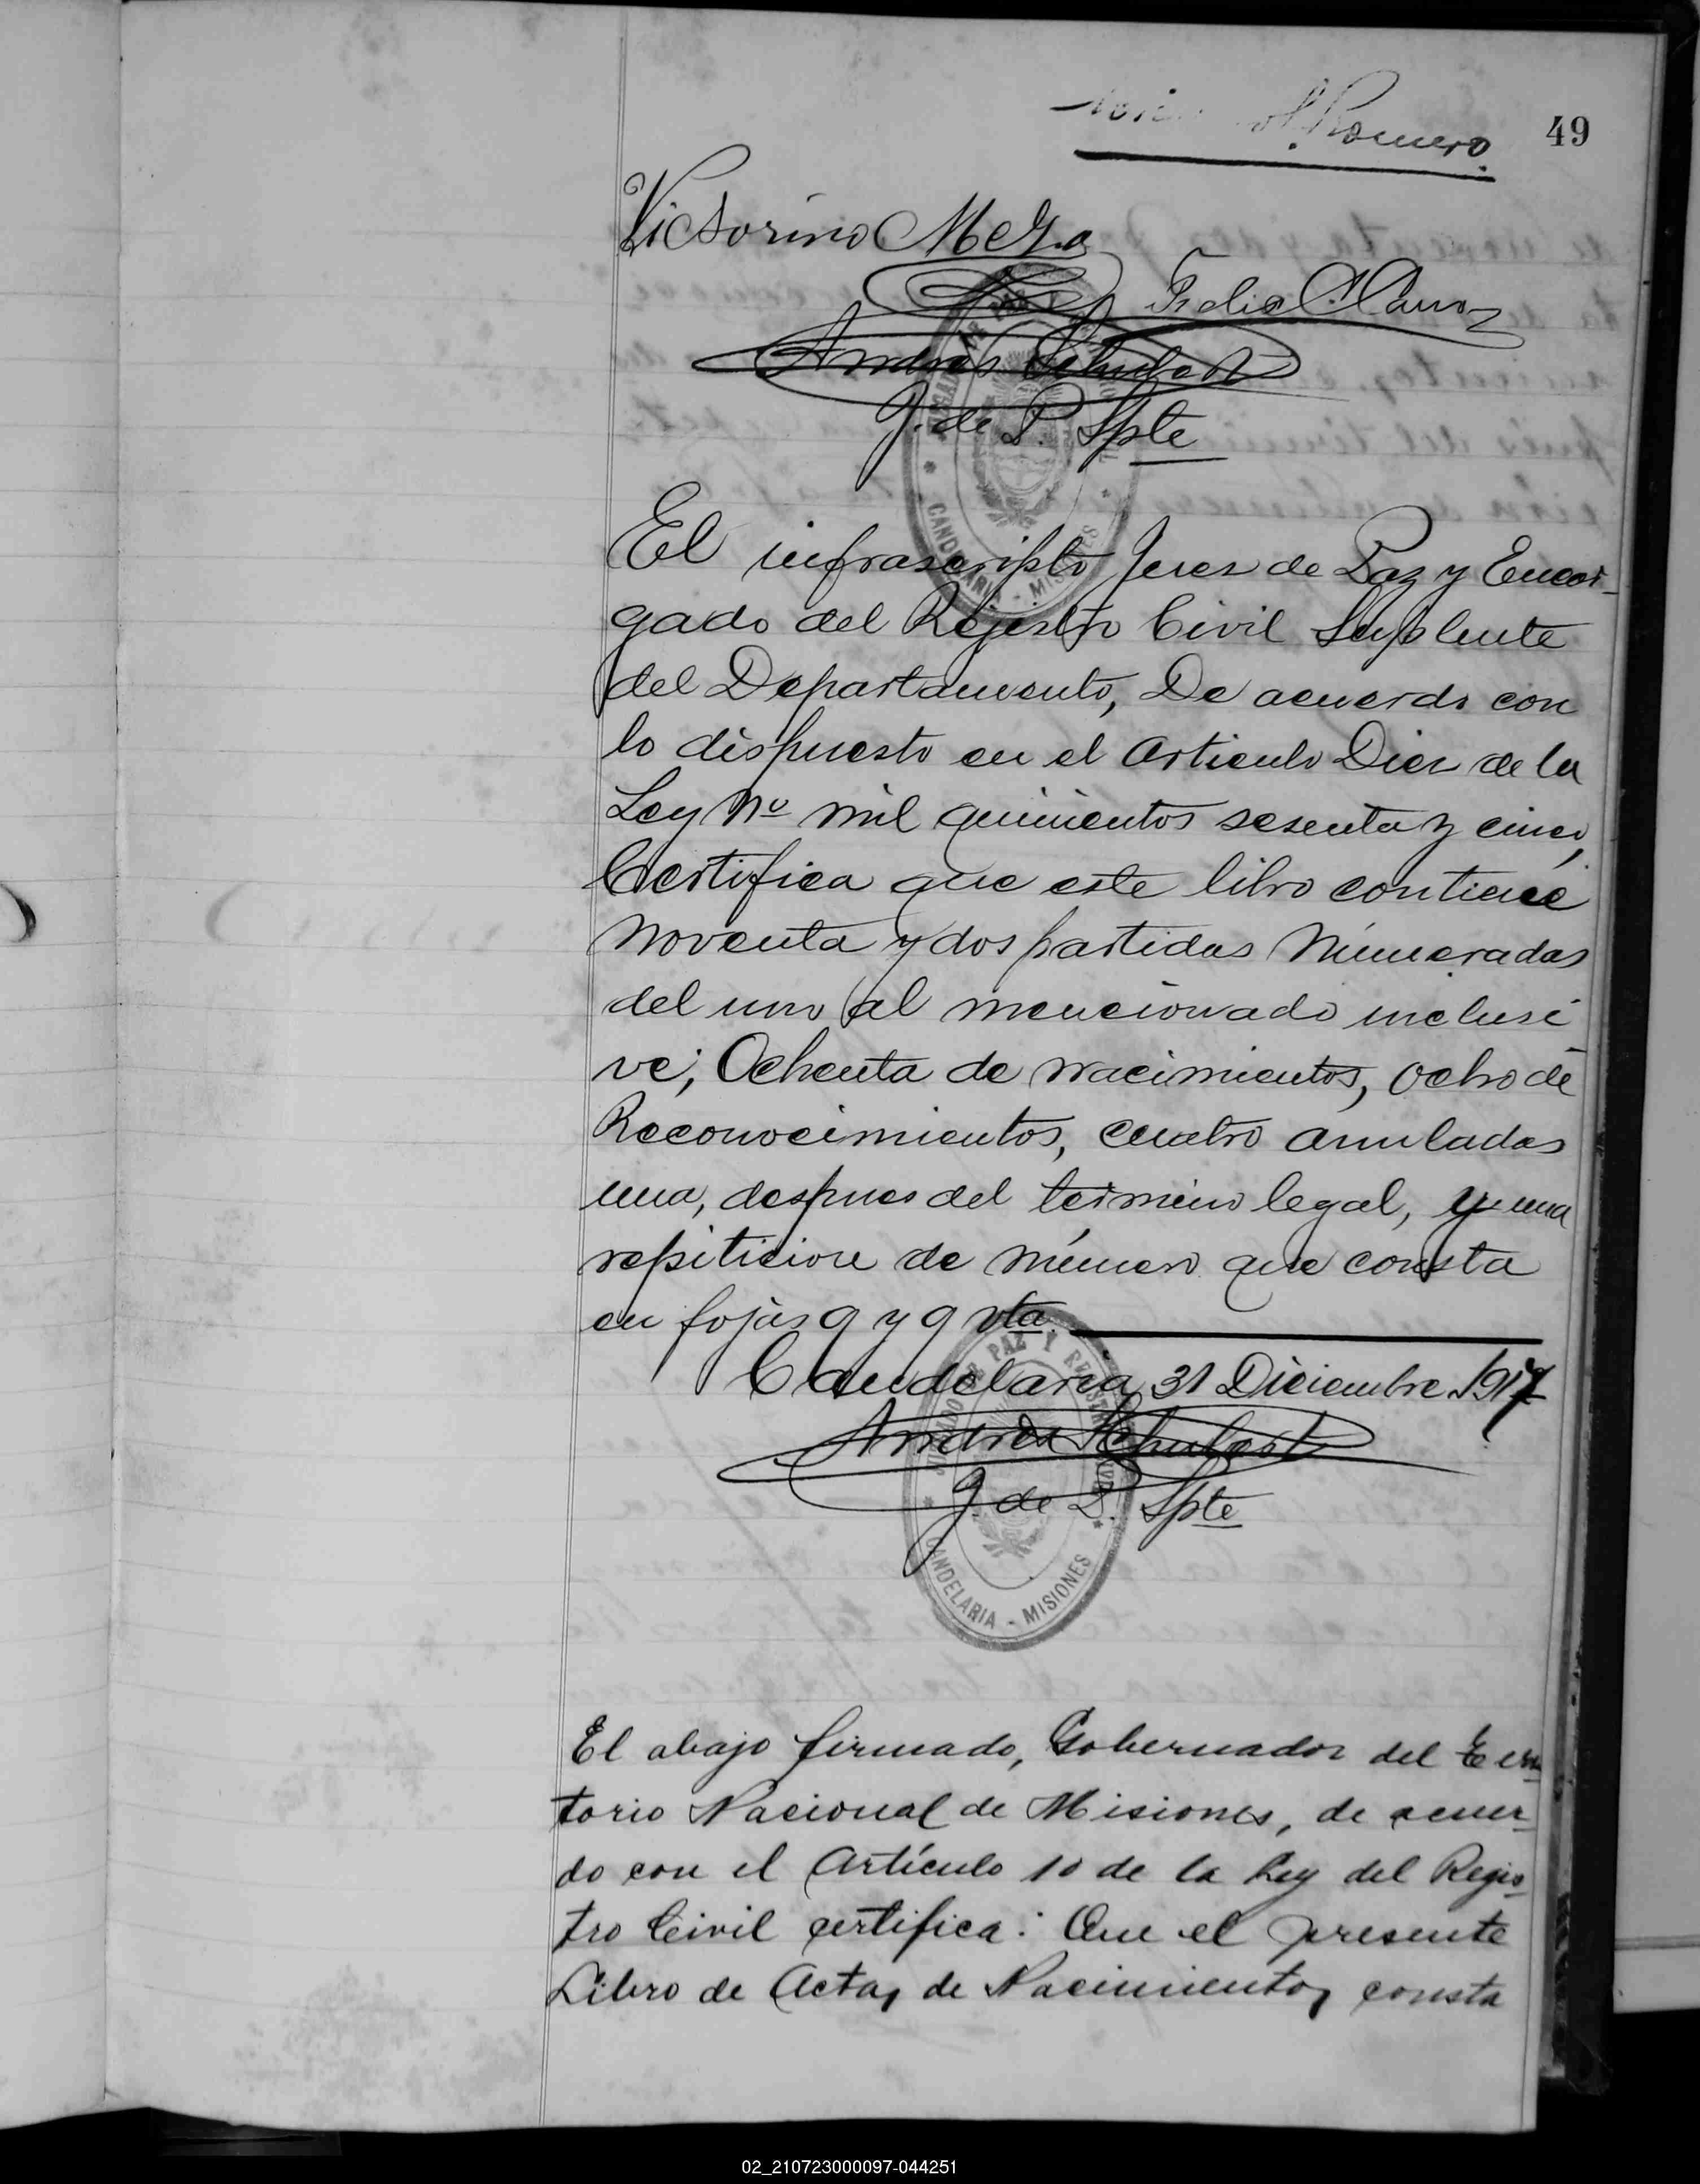 49
Romero.
Victorino Meza
Andrés Schubert
J. de P. Spte
El infrascripto Juez de Paz y Encar-
gado del Rejistro Civil Suplente
del Departamento, De acuerdo con
lo dispuesto en el Articulo Diez de la
Ley Nº mil quinientos sesenta y cinco,
Certifica que este libro contiene
Noventa y dos partidas Númeradas
del uno al mencionado inclusi
ve; Ochenta de nacimientos, Ocho de
Reconocimientos, cuatro anuladas
una, despues del termino legal, y una
repiticion de número que consta
en fojas 9 y 9 vta.
Candelaria, 31 Diciembre 1917
Andrés Schubert
J. de P. Spte
JUZGADO DE PAZ Y REGISTRO CIVIL
CANDELARIA - MISIONES
El abajo firmado, Gobernador del Terri-
torio Nacional de Misiones, de acuer-
do con el Artículo 10 de la Ley del Regis-
tro Civil certifica: Que el presente
Libro de Actas de Nacimientos consta
02_210723000097-044251